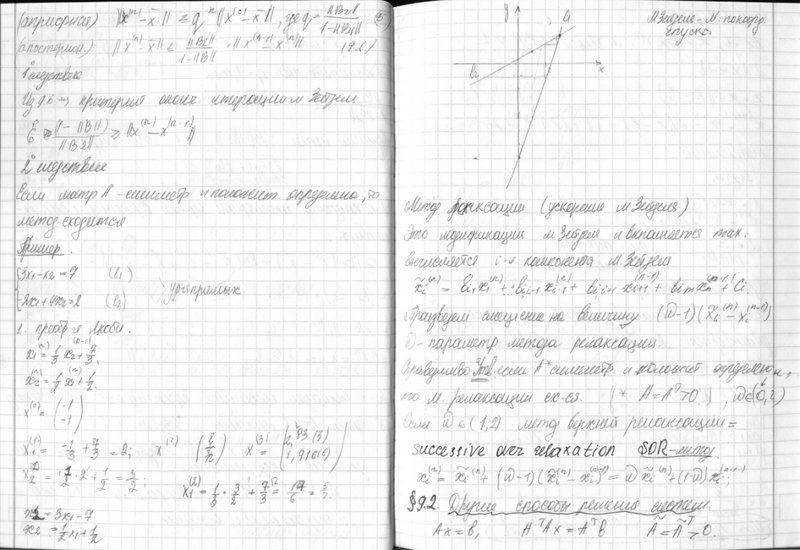 (априорная) ||x^(n) - x̄|| ≤ q^n ||x^(0) - x̄||, где q = ||B2|| / (1-||B1||) (5)
(апостериор.) ||x^(n) - x̄|| ≤ ||B2|| / (1-||B1||) · ||x^(n-1) - x^(n)|| (9.6)
1° следствие
Из 9.6 → критерий оконч. итерации м Зейделя
||x^(n) - x^(n-1)||
2° следствие
Если матр A - симметр и положит. определена, то
метод сходится
Пример.
{3x1-x2=7 (l1)
{-2x1+4x2=2 (l2) } ур-я прямых
1. преобр я Якоби.
x1^(n) = 1/3 x2^(n-1) + 7/3,
x2^(n) = 1/2 x1^(n) + 1/2.
x^(0) = (-1 -1)
x1^(1) = -1/3 + 7/3 = 2; x^(2) x^(3) =
x2 = 1/2 · 2 + 1/2 = 3/2; x1^(2) = 1/3 · 3/2 + 7/3 = 17/6
x2 = 3x1-7
x2 = 1/2 x1 + 1/2
y
l1
l2
x
М Зейделя - М. покоорд.
спуска
Метод релаксации (ускорение м Зейделя)
Это модификация м Зейделя и выполняется так:
вычисляется i-я компонента м Зейделя
x̃i^(n) = bi1 x1^(n) + ... + bi,i-1 xi-1^(n) + bi,i+1 xi+1^(n-1) + bim xm^(n-1) + Ci.
Произведем смещение на величину (ω-1)(x̃i^(n) - xi^(n-1))
ω - параметр метода релаксации.
Справедливо Утв. если A* симметр. и положит определена,
то м. релаксации сх-ся. (* A=A^T>0), ω∈(0,2)
Если ω ∈ (1,2) метод верхней релаксации =
successive over relaxation SOR-метод.
xi^(n) = x̃i^(n) + (ω-1)(x̃i^(n) - xi^(n-1)) = ω x̃i^(n) + (1-ω) xi^(n-1);
§9.2. Другие способы решения систем.
Ax=b, A^T Ax = A^T b Ã=Ã^T>0.